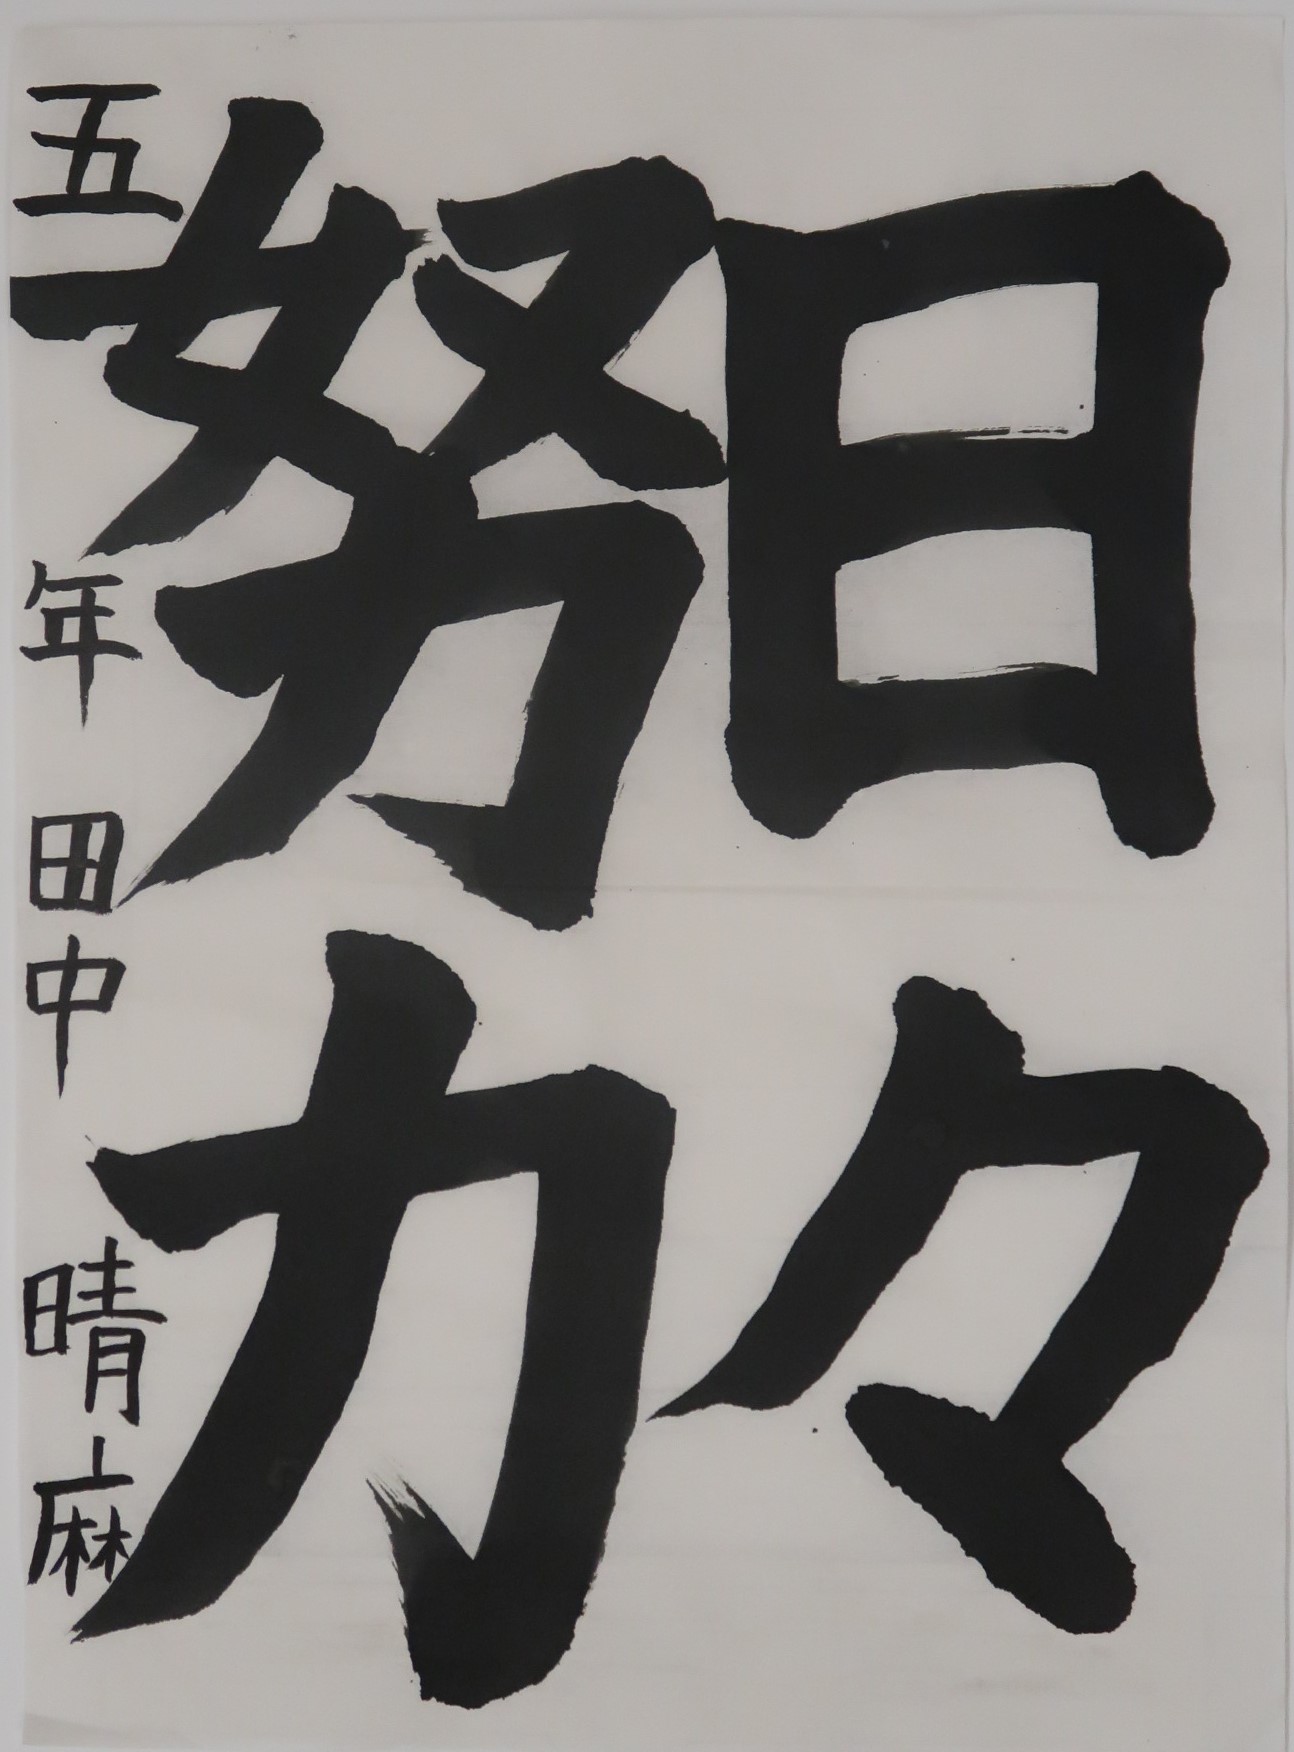 日々
努力
五年 田中 晴麻